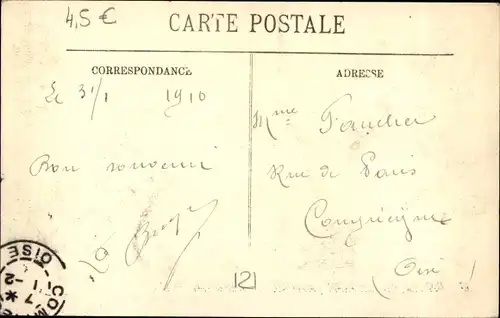 4,5 €
CARTE POSTALE
CORRESPONDANCE
ADRESSE
Le 31/1 1910
Bon souvenir
Mme Faucher
Rue de Paris
Compiègne
(Oise)
121
OISE